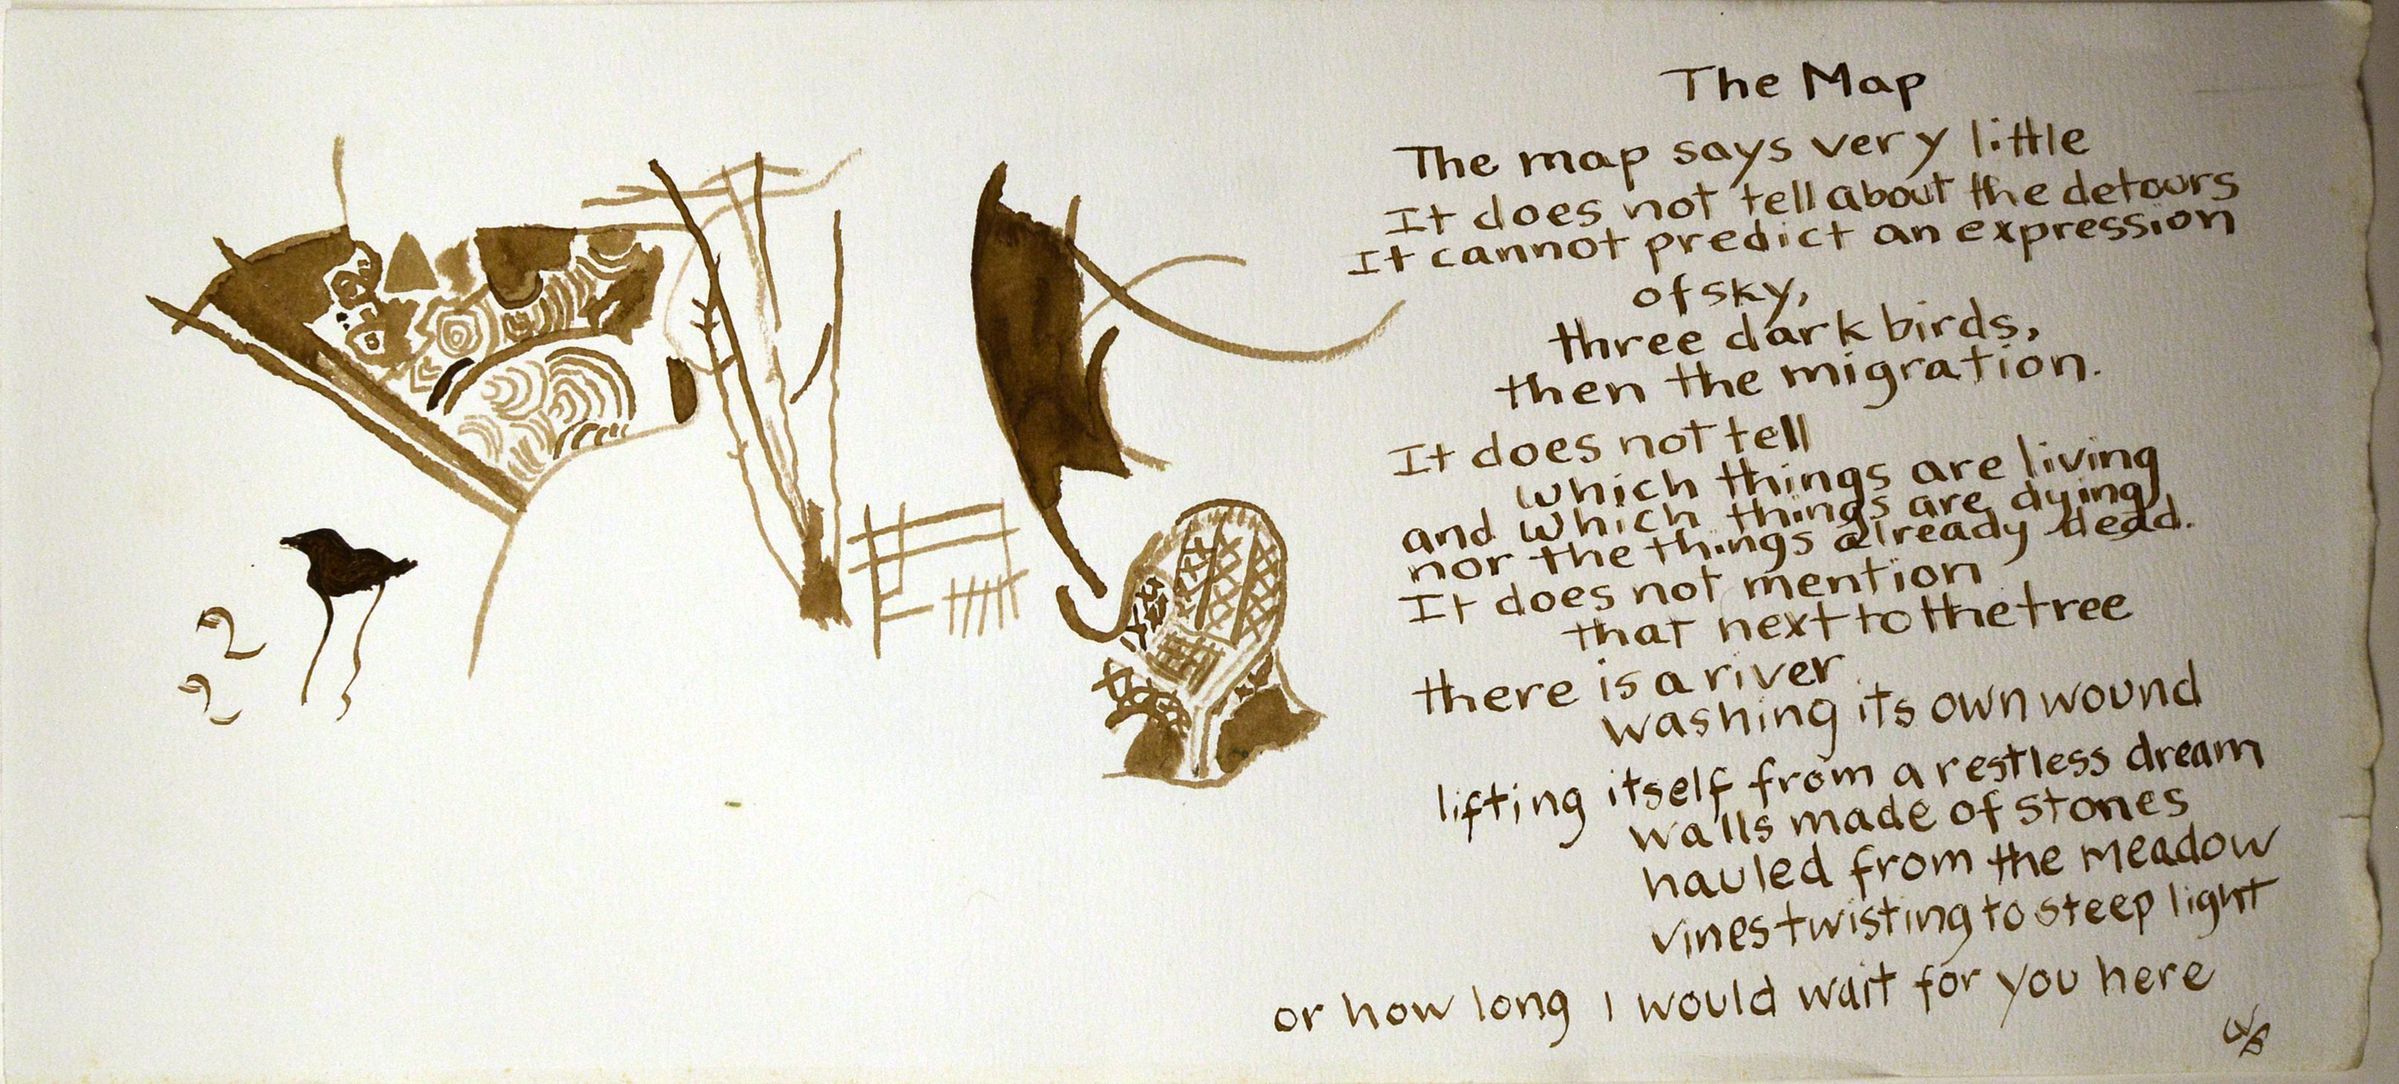 The Map
The map says very little
It does not tell about the detours
It cannot predict an expression
of sky,
three dark birds,
then the migration.
It does not tell
which things are living
and which things are dying
nor the things already dead.
It does not mention
that next to the tree
there is a river
washing its own wound
lifting itself from a restless dream
walls made of stones
hauled from the meadow
vines twisting to steep light
or how long I would wait for you here
2
2